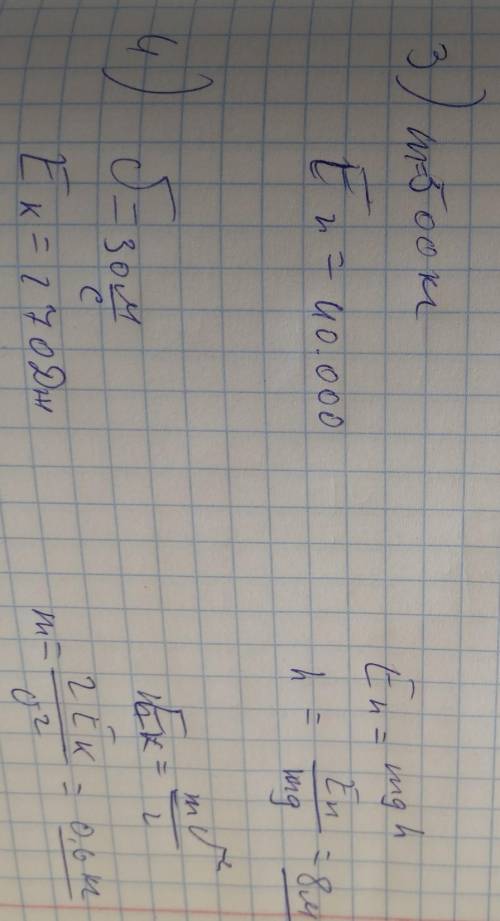 3) m=500 кг
Eп = 40.000
Eп = mgh
h = Eп/mg = 8м
4) v = 30 м/с
Eк = 270 Дж
Eк = mv²/2
m = 2Eк/v² = 0,6 кг